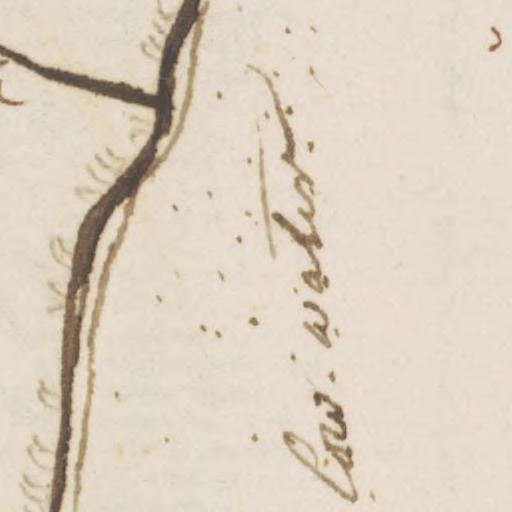 Low. water.